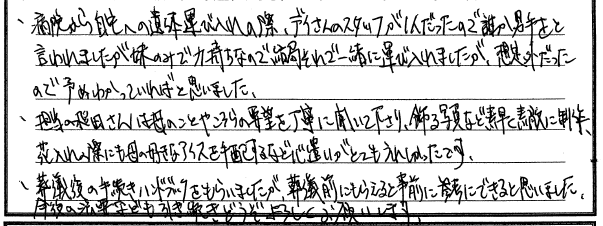 ・病院から自宅への遺体運び入れの際、デイさんのスタッフが1人だったので誰か男手をと
言われましたが妹のみで力持ちなので結局それで一緒に運び入れましたが、想定外だった
ので予めわかっていればと思いました。
・担当の桜田さんは母のことやこちらの要望を丁寧に聞いて下さり、飾る写真など素早く素敵に制作、
花入れの際にも母の好きなアイスを手配するなど心遣いがとてもうれしかったです。
・葬儀後の手続きハンドブックをもらいましたが、葬儀前にもらえると事前に参考にできると思いました。
今後の法要なども引き続きどうぞよろしくお願いします。